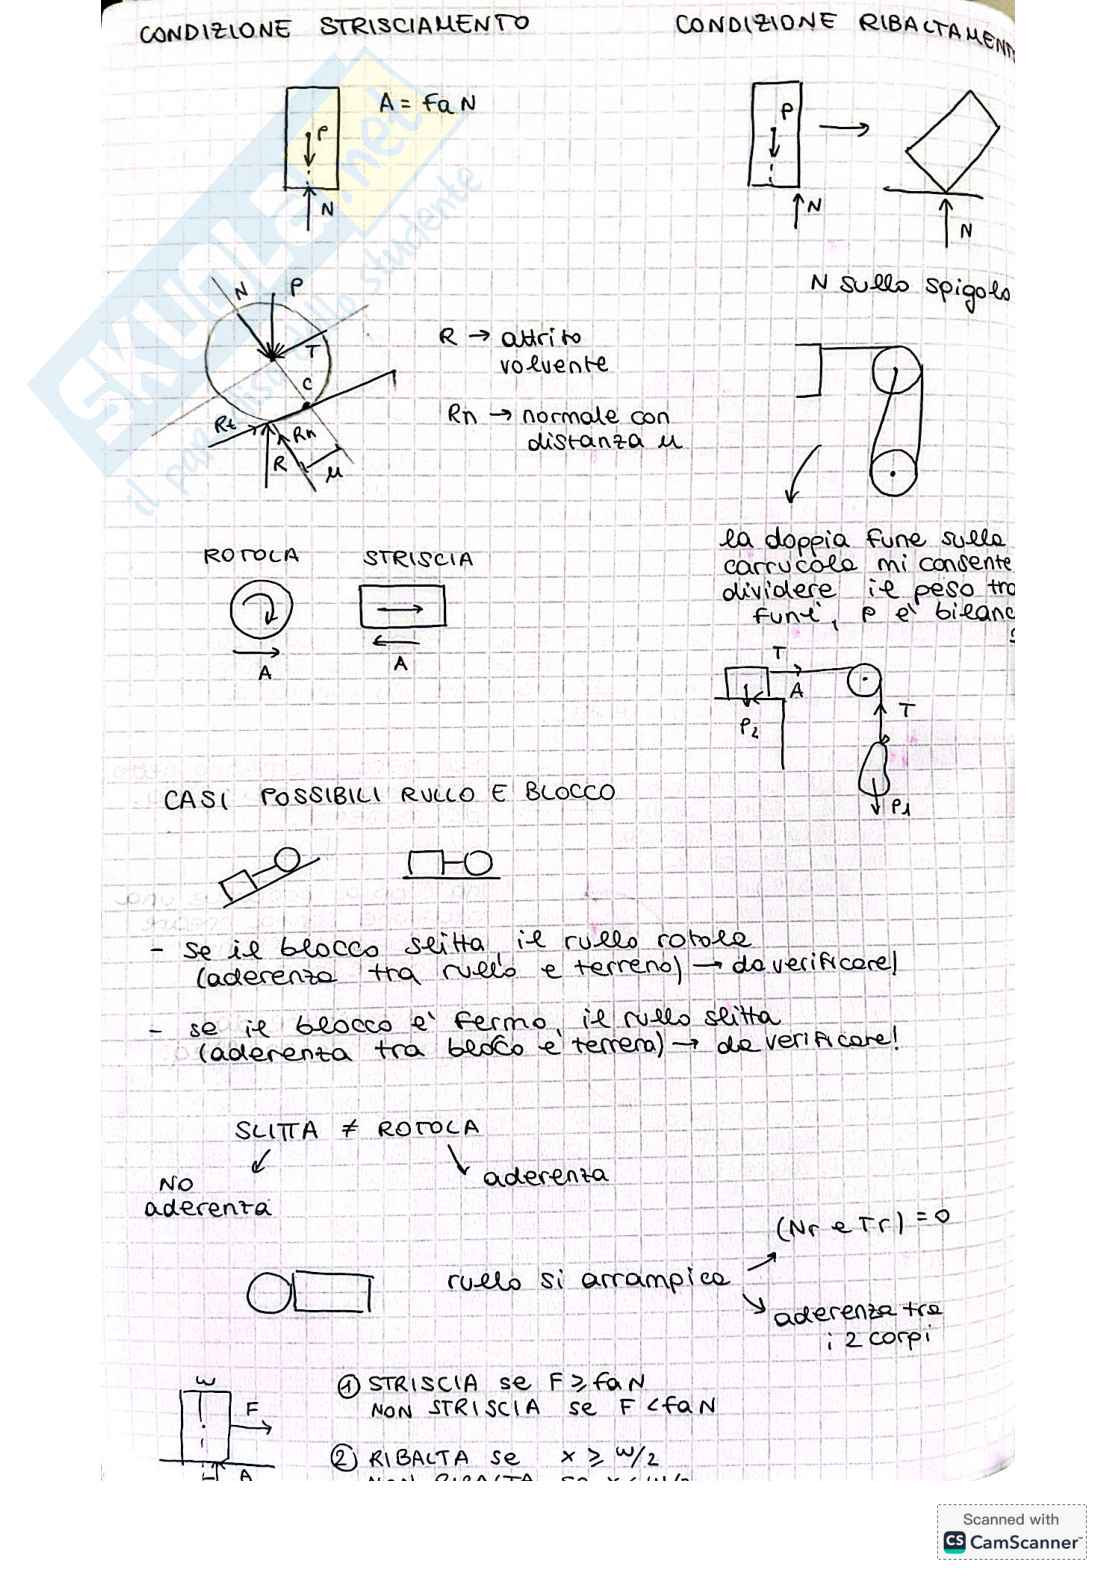 CONDIZIONE STRISCIAMENTO
CONDIZIONE RIBALTAMENT
A = fa N
P
N
P
N
N
N sullo spigolo
N
P
T
C
Rt
Rn
R
μ
R → attrito
volvente
Rn → normale con
distanza μ
la doppia fune sulla
carrucola mi consente
dividere il peso tra
funi, P e' bilanc
ROTOLA
STRISCIA
A
A
T
A
P2
T
P1
CASI POSSIBILI RULLO E BLOCCO
- se il blocco slitta, il rullo rotola
(aderenza tra rullo e terreno) → da verificare!
- se il blocco e' fermo, il rullo slitta
(aderenza tra blocco e terreno) → da verificare!
SLITTA ≠ ROTOLA
NO
aderenza
aderenza
rullo si arrampica
(Nr e Tr) = 0
aderenza tra
i 2 corpi
w
F
A
① STRISCIA se F ≥ fa N
NON STRISCIA se F < fa N
② RIBALTA se x ≥ w/2
NON RIBALTA se x < w/2
SKUOLA.net
il paradiso dello studente
Scanned with
CS CamScanner